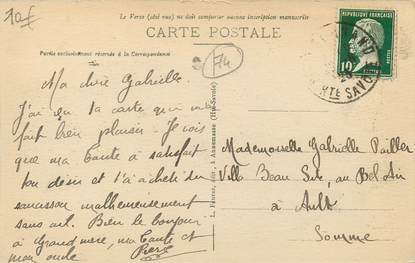 10f
Le Verso (côté vue) ne doit comporter aucune inscription manuscrite
CARTE POSTALE
Partie exclusivement réservée à la Correspondance
74
REPUBLIQUE FRANÇAISE
10c
POSTES
HTE SAVOIE
L. Fautraz, édit., à Annemasse (Hte-Savoie)
Ma chère Gabrielle.
J'ai eu ta carte qui m'a
fait bien plaisir. Je vois
que ma tante a satisfait
ton désir et t'a acheté du
saucisson malheureusement
sans ail. Bien le bonjour
à Grand mère, ma tante et
mon oncle Pierre
Mademoiselle Gabrielle Pailler
Villa Beau Site, au Bel Air
à Ault
Somme